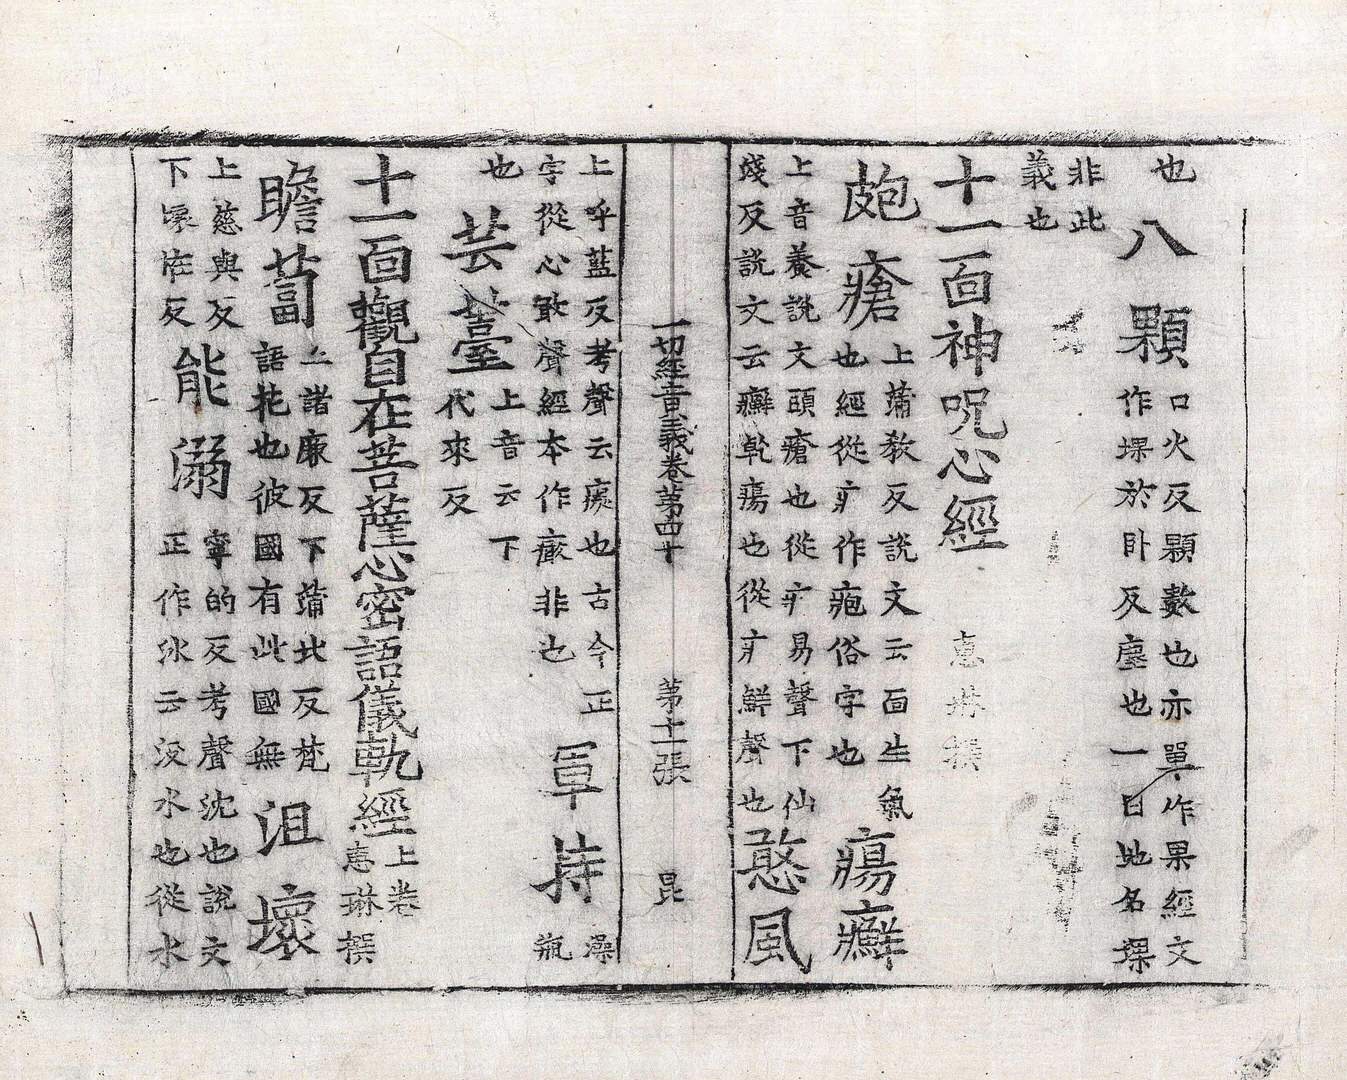 也八顆口火反顆數也亦單作果經文
作堁於卧反塵也一曰地名堁
非此
義也
十一面神呪心經 惠琳撰
皰瘡上蒲教反說文云面生氣
也經從疒作疱俗字也瘍癬
上音養說文頭瘡也從疒易聲下仙
殘反說文云癬乾瘍也從疒鮮聲也憨風
一切經音義卷第四十 第十一張 昆
上呼藍反考聲云癡也古今正
字從心敢聲經本作㾴非也軍持澡
瓶
也芸薹上音云下
代來反
十一面觀自在菩薩心密語儀軌經上卷
惠琳撰
瞻蔔上諸廉反下蒲北反梵
語花也彼國有此國無沮壞
上慈與反
下懷怪反能溺寧的反考聲沈也說文
正作㲻云沒水也從水